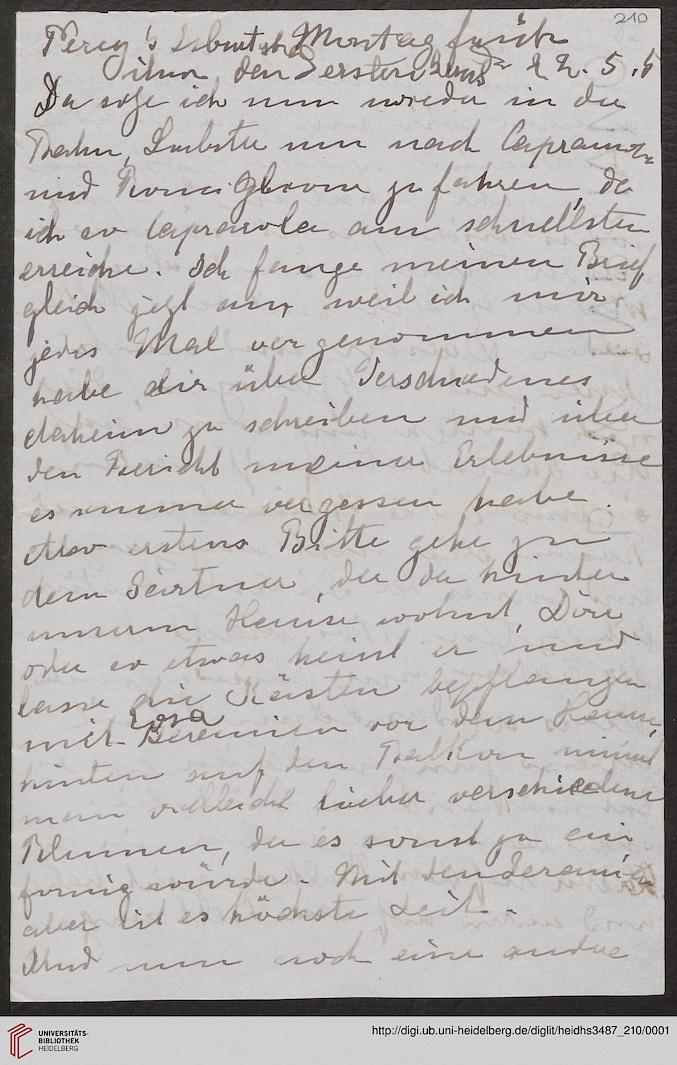 210
Percy's Geburtstag Montag früh
den 22. 5.
Da sitze ich nun wieder in der
Bahn, Liebster um nach
und Ronciglione zu fahren, da
ich so Caprarola am schnellsten
erreiche. Ich fange meinen Brief
gleich jetzt an, weil ich mir
jedes Mal vorgenommen
habe, dir über Verschiedenes
daheim zu schreiben und über
den Bericht meiner Erlebnisse
es immer vergessen habe.
Also erstens Bitte gehe zu
dem Gärtner, der da hinter
unserm Hause wohnt, Döri
oder so etwas heisst er und
lasse die Kästen bepflanzen
mit Rosa Geranien vor dem Hause,
hinten auf den Balkon nimmt
man vielleicht lieber verschiedene
Blumen, da es sonst zu ein
förmig würde. Mit den Geranien
aber ist es höchste Zeit.
Und nun noch eine andre
UNIVERSITÄTS-
BIBLIOTHEK
HEIDELBERG
http://digi.ub.uni-heidelberg.de/diglit/heidhs3487_210/0001